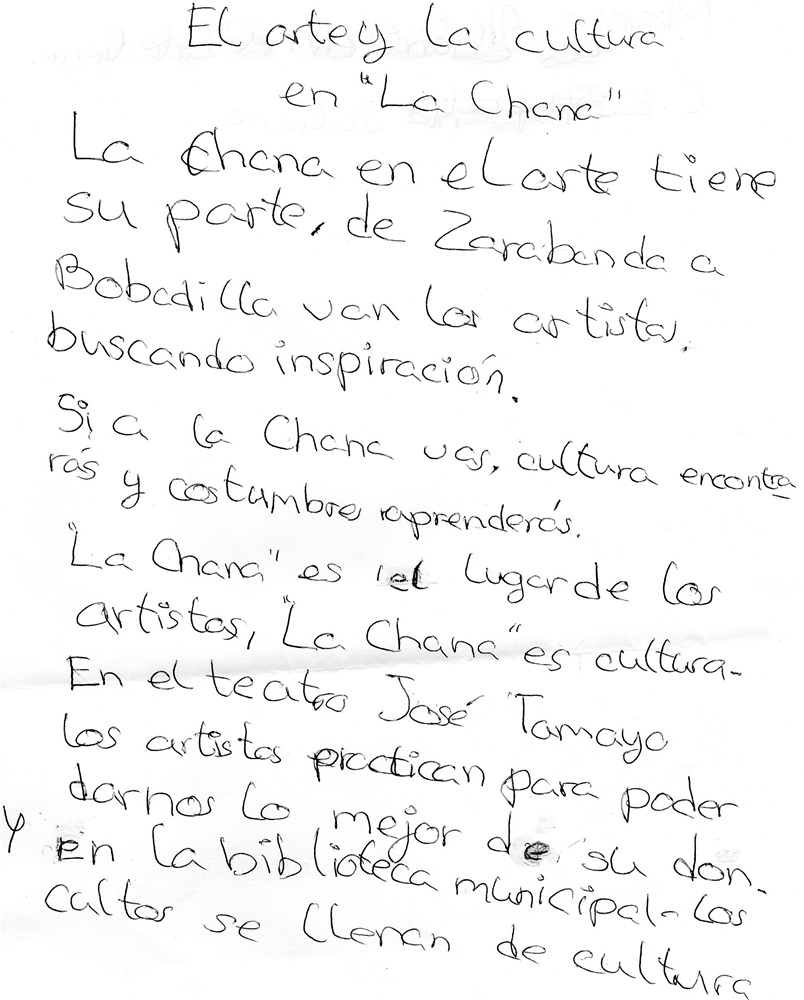 El arte y la cultura
en "La Chana"
La Chana en el arte tiene
su parte, de Zarabanda a
Bobadilla van los artistas,
buscando inspiración.
Si a la Chana vas, cultura encontra
rás y costumbres aprenderás.
"La Chana" es el lugar de los
artistas, "La Chana" es cultura.
En el teatro José Tamayo
los artistas practican para poder
darnos lo mejor de su don.
y En la biblioteca municipal los
cultos se llenan de cultura